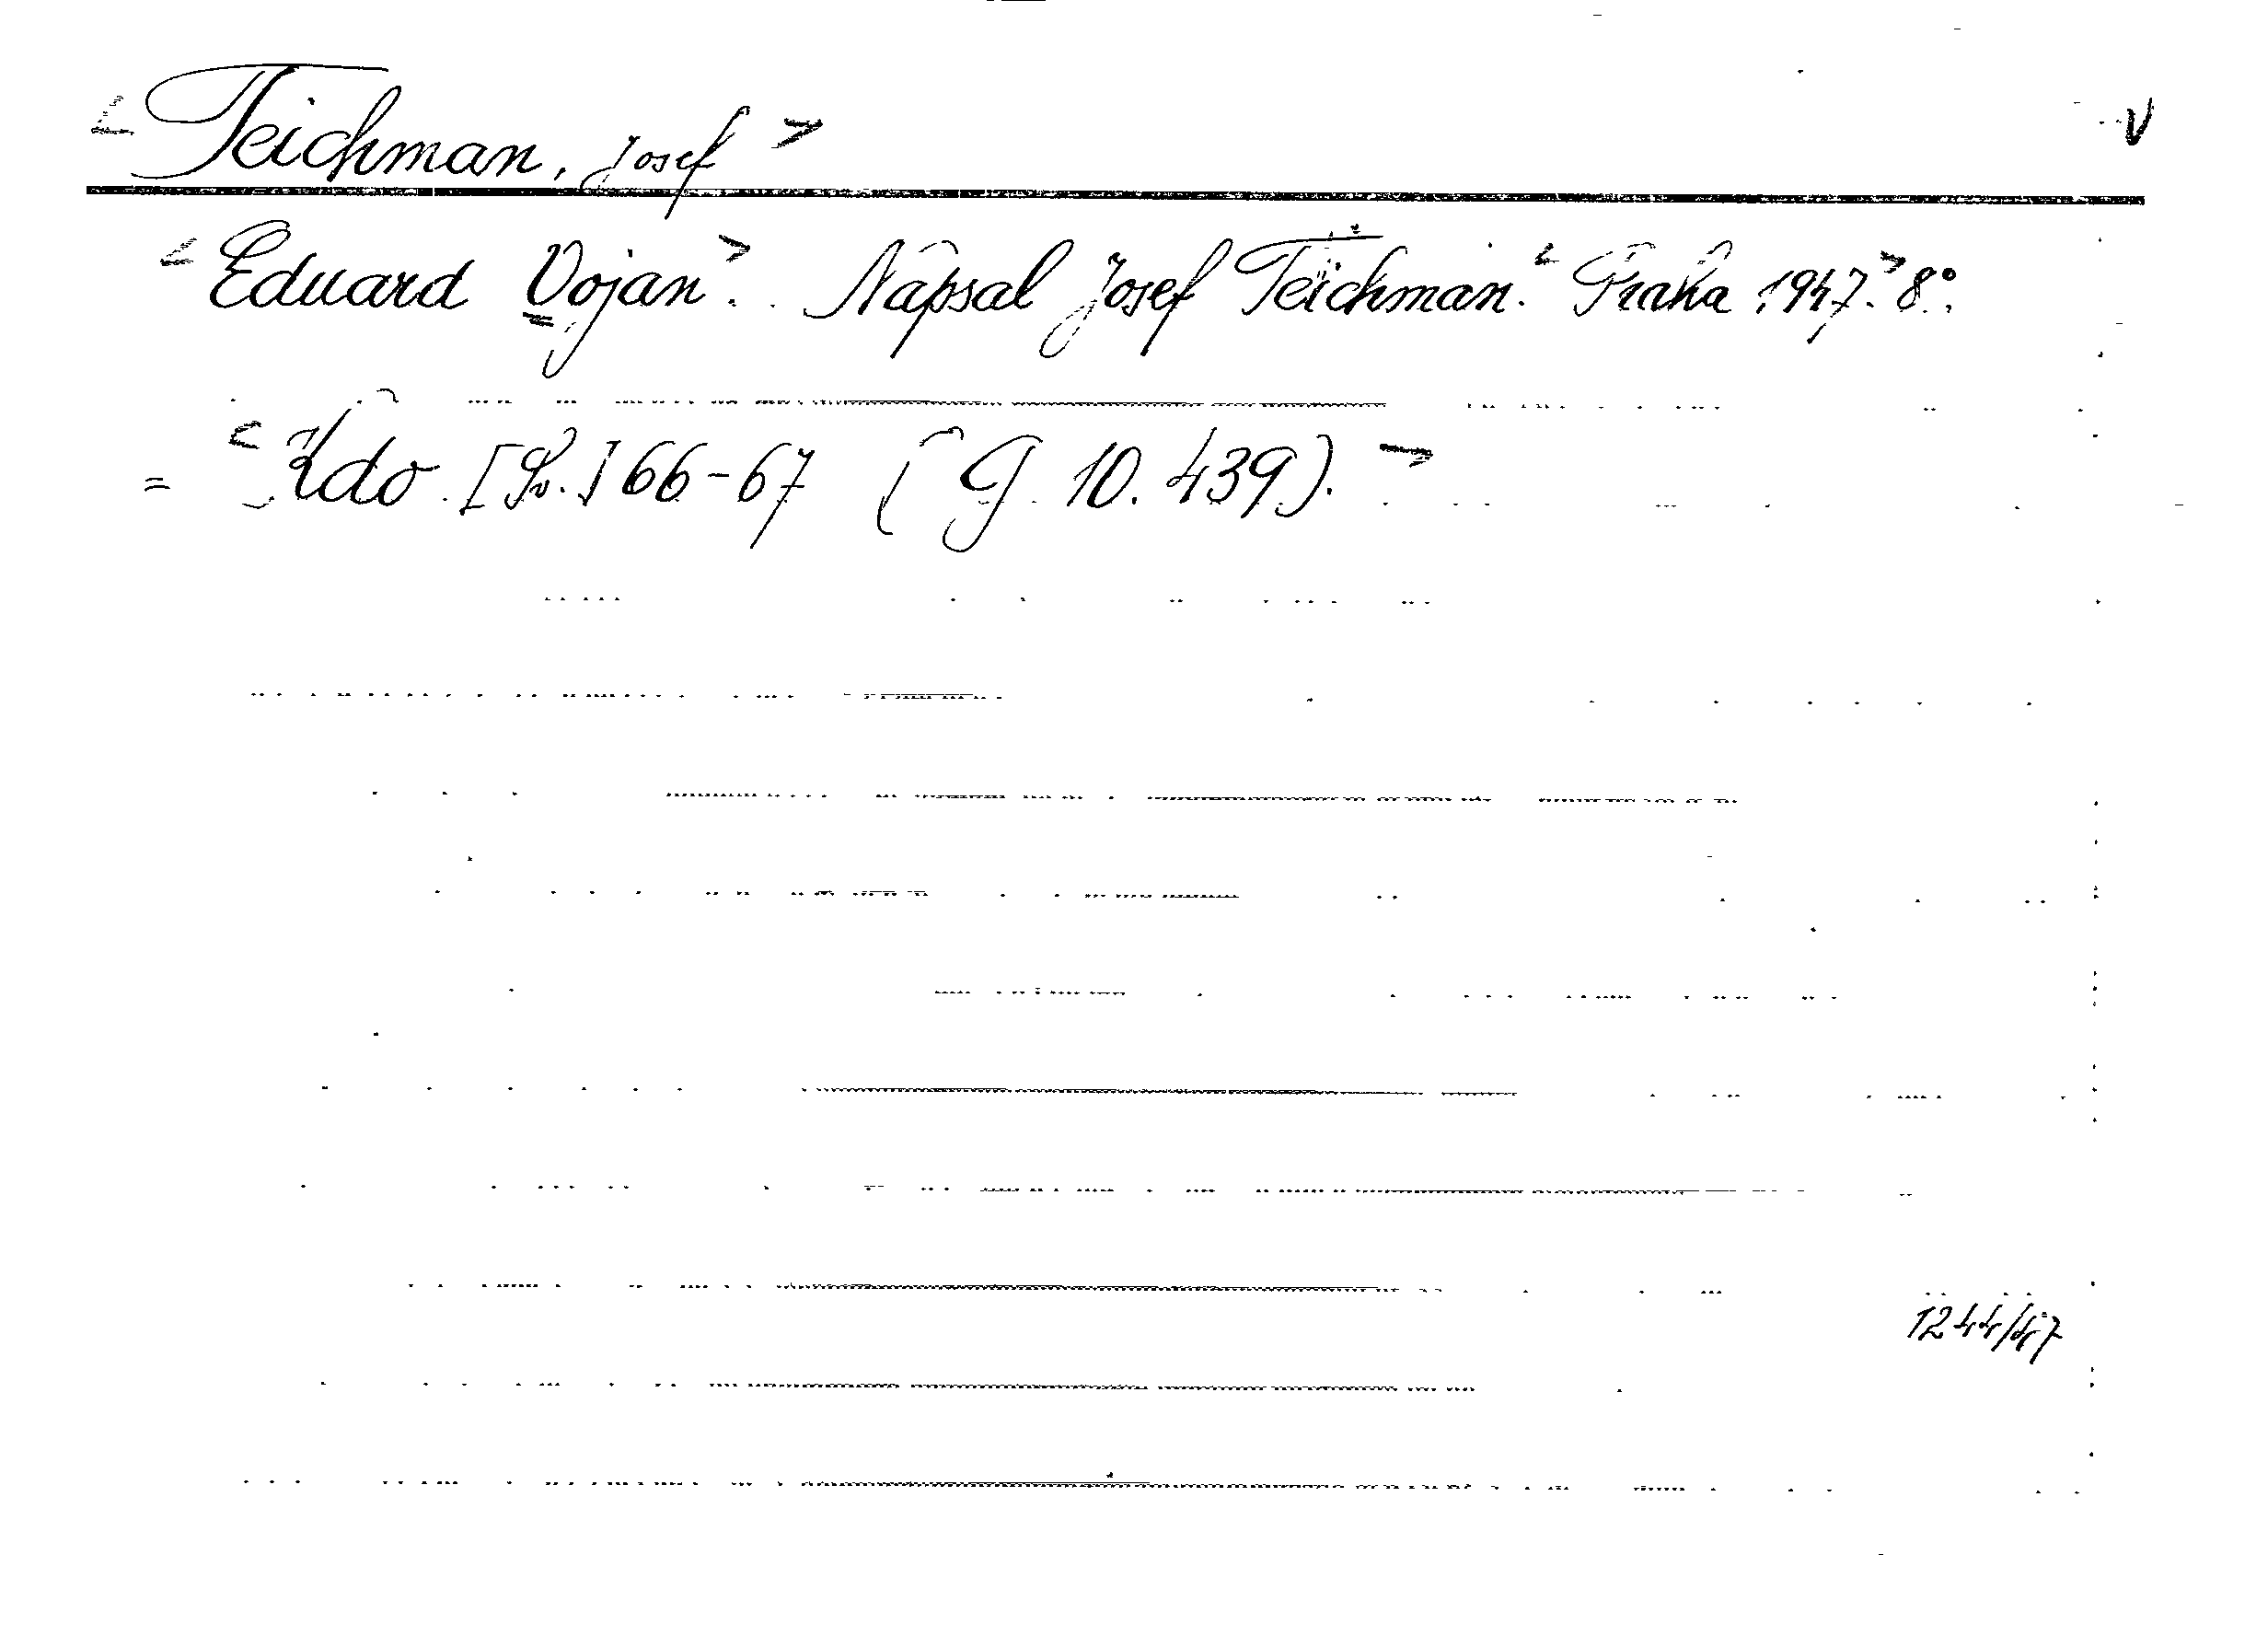 <Teichman, Josef> V
<Eduard Vojan>. Napsal Josef Teichman. <Praha 1947.> 8°.
= <Kdo. [Sv.] 66-67 (G 10.439).>
1244/47